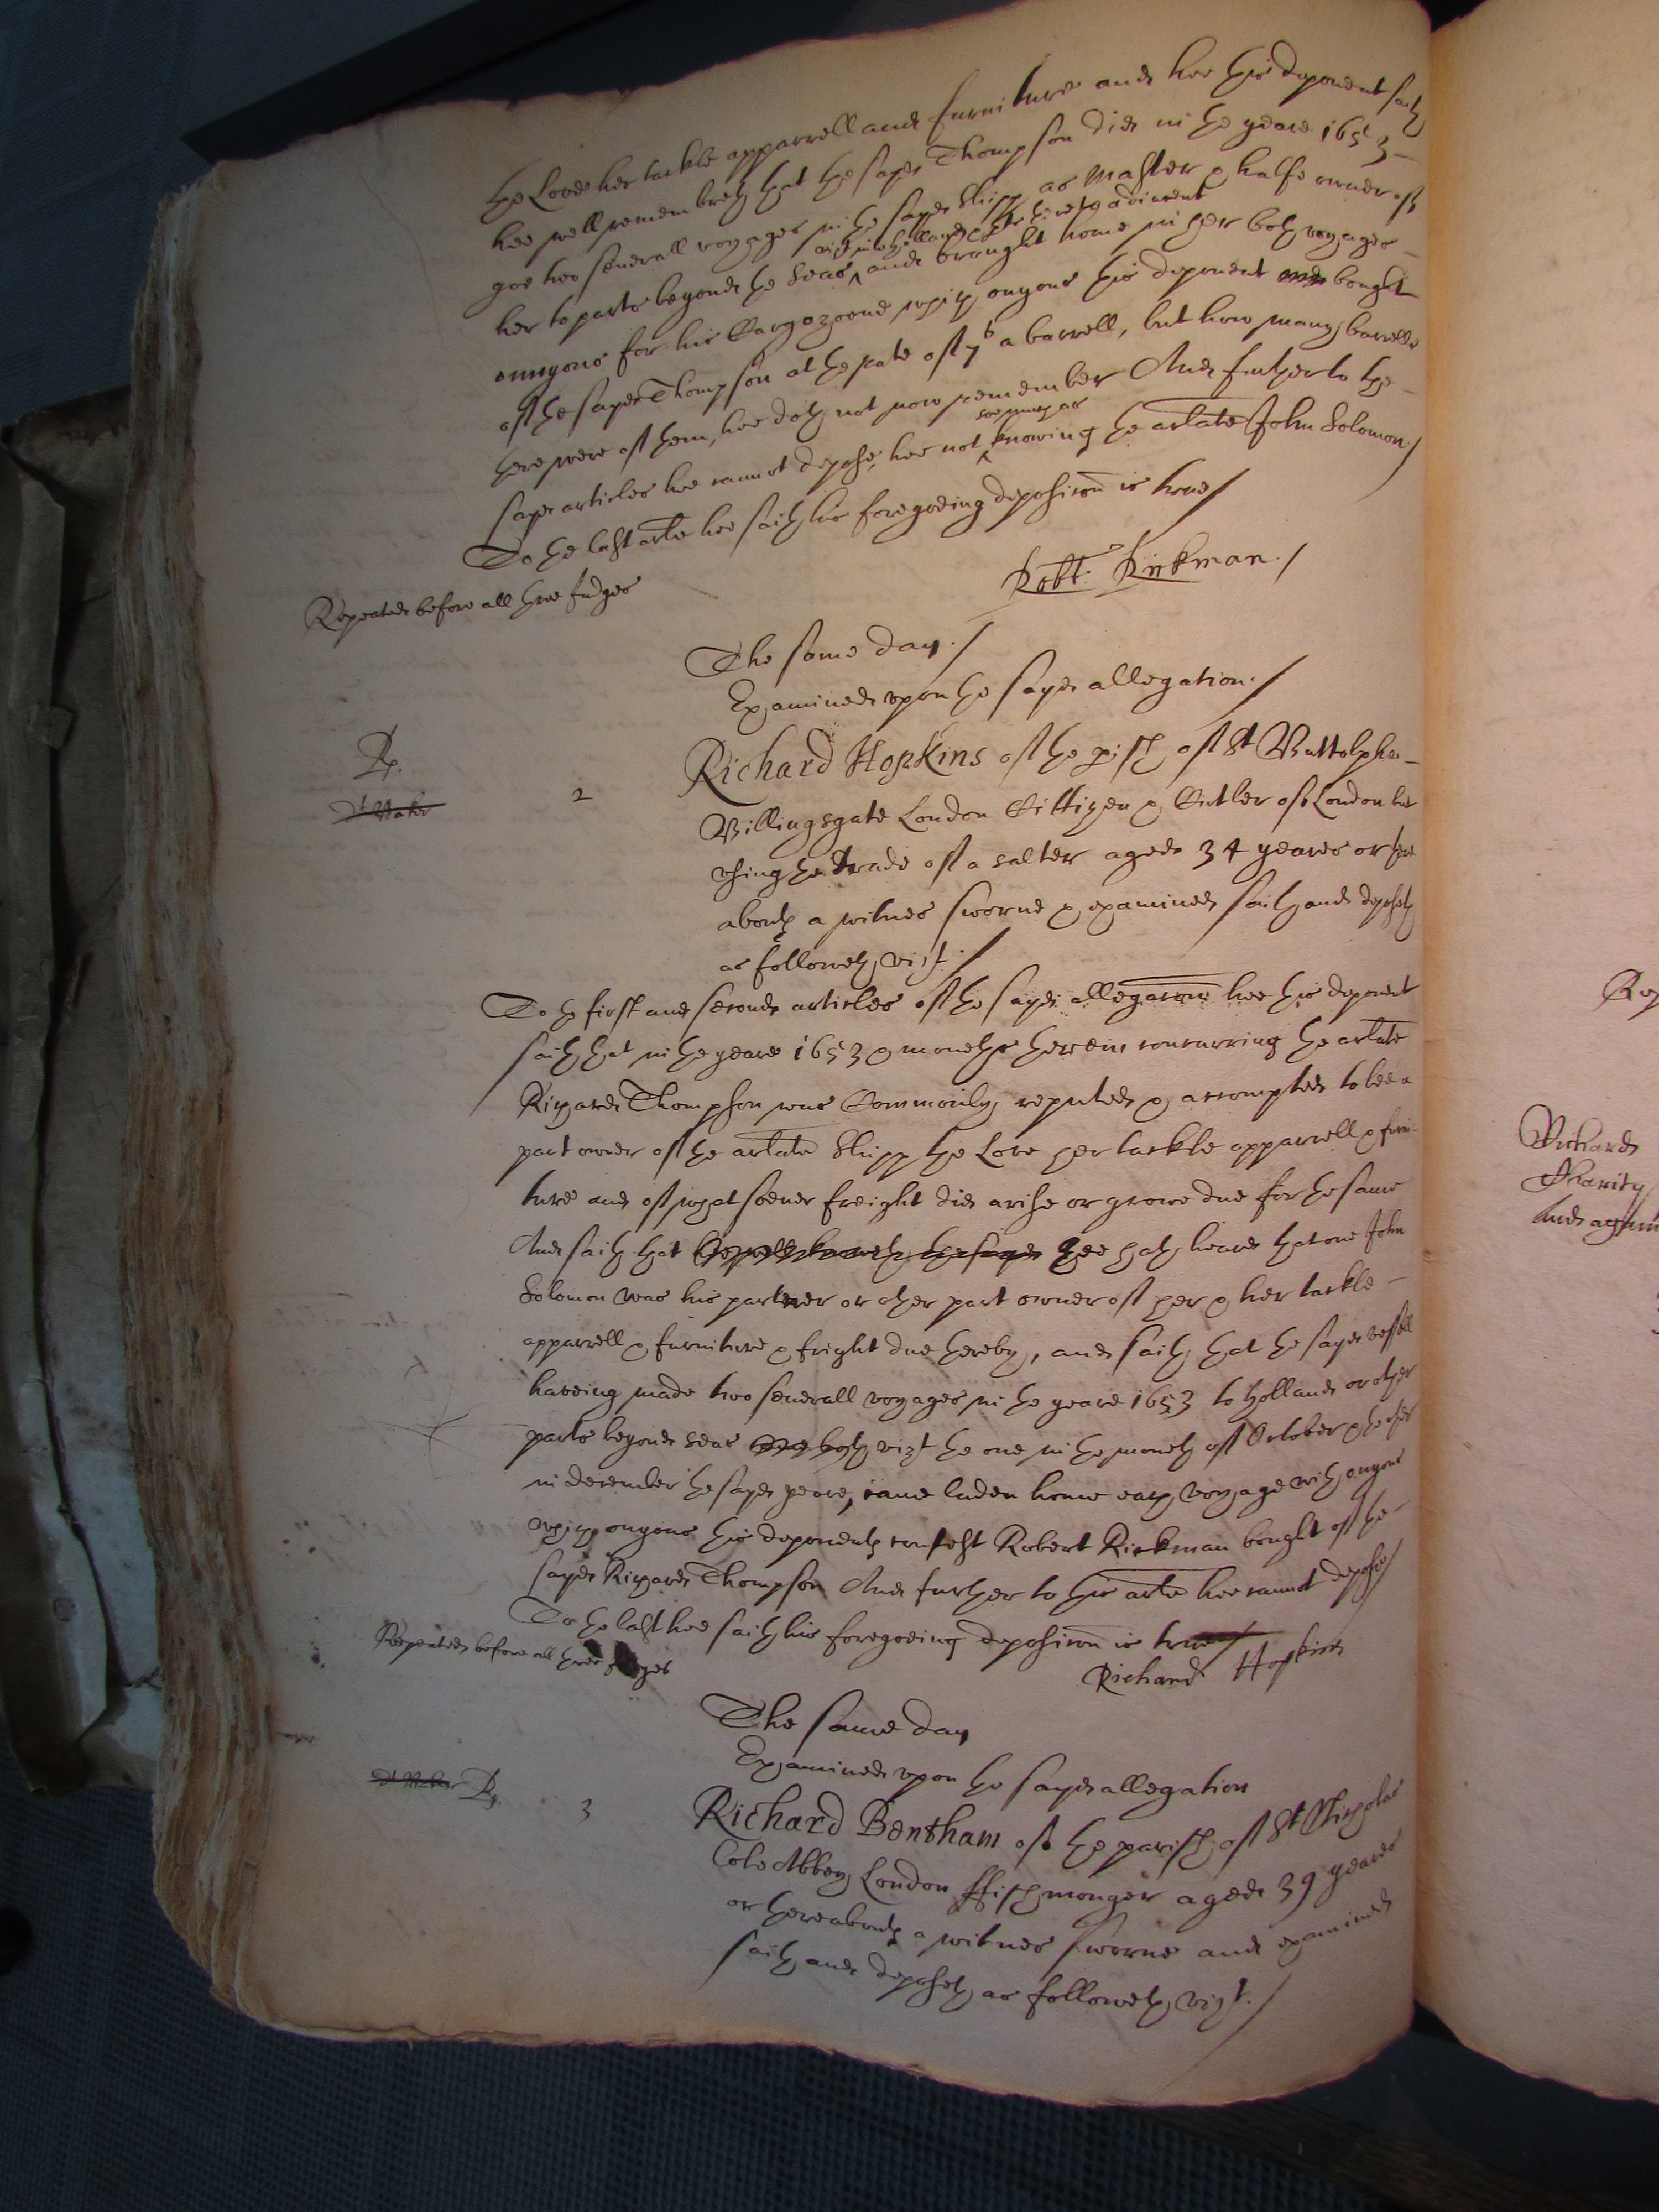 the Love her tackle apparrell and furniture and hee this deponent saith
hee well remembreth that the sayd Thompson did in the yeare 1653
goe two severall voyages in the sayd shipp as Master & halfe owner of
her to parts beyond the Seas and brought home in her both voyages
onnyons for his Cargozoone which onyons this deponent bought
of the sayd Thompson at the rate of 7s a barrell, but how many barrells
there were of them, hee doth not now remember And further to the
sayd articles hee cannot depose, hee not soe much as knowing the arlate John Solomon /
To the last arte hee saith his foregoeing deposicon is true /
Repeated before all three Judges
Robt: Kirkman. /
The same day. /
Examined upon the sayd allegation. /
Rp.
2
Richard Hopkins of the pish of St Buttolphes
Billingsgate London Cittizen & Cutler of London but
using the trade of a salter aged 34 yeares or there
abouts a witnes sworne & examined saith and deposeth
as followeth vizt. /
To the first and second articles of the sayd allegacone hee this deponent
saith that in the yeare 1653 & moneths therein concurring the arlate
Richard Thompson was Commonly reputed & accompted to bee a
part owner of the arlate shipp the Love her tackle apparrell & furni-
ture and of whatsoever freight did arise or growe due for the same
And saith that hee well knoweth the sayd hee hath heard that one John
Solomon was his partener or other part owner of her & her tackle
apparrell & furniture & fright due thereby, and saith that the sayd vessell
haveing made two severall voyages in the yeare 1653 to Holland or other
parts beyond seas vizt the one in the moneth of October & the other
in december the sayd yeare, came laden home each voyage with onyons
which onyons this deponents contest Robert Kirkman bought of the
sayd Richard Thompson And further to this arte hee cannot depose /
To the last hee saith his foregoeing deposicon is true /
Repeated before all three Judges
Richard Hopkins
The same day
Examined upon the sayd allegation
Rp.
3
Richard Bentham of the parish of St Nicholas
Cole Abbey London ffishmonger aged 39 yeares
or thereabouts a witnes sworne and examined
saith and deposeth as followeth vizt. /